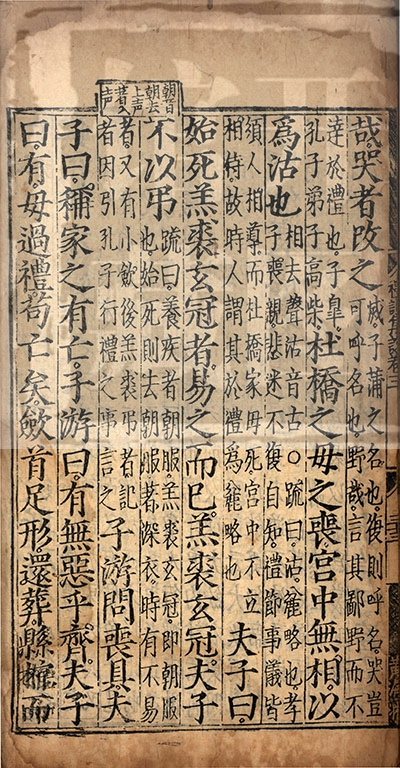 朝音
朝去
上声
著入
声
哉哭者改之滅子蒲之名也復則呼名哭豈
可呼名也野哉言其鄙野而不
達於禮也子皐
孔子弟子高柴杜橋之母之喪宮中無相以
爲沽也相去聲沽音古○疏曰沽麄略也孝
子喪親悲迷不復自知禮節事儀皆
須人相尊而杜橋家母死宮中不立
相侍故時人謂其於禮爲麄略也夫子曰
始死羔裘玄冠者易之而已羔裘玄冠夫子
不以弔疏曰養疾者朝服羔裘玄冠即朝服
也始死則去朝服著深衣時有不易
者又有小歛後羔裘弔者記
者因引孔子行禮之事言之子游問喪具夫
子曰稱家之有亡子游曰有無惡乎齊夫子
曰有毋過禮苟亡矣歛首足形還葬縣棺而